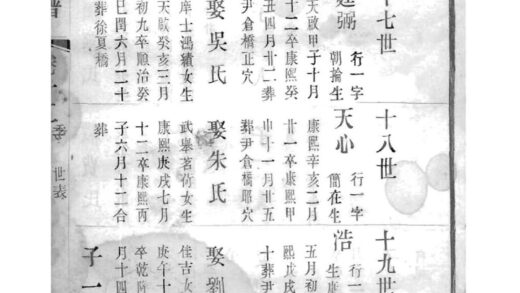 十七世
行一字
弼
朝掄生
天啟甲子十月
十二卒康熙癸
丑四月廿二葬
尹倉橋正穴
娶吳氏
庠士馮績女生
天啟癸亥三月
初九卒順治癸
巳閏六月二十
葬徐夏橋
十八世
行一字
天心
簡在生
康熙辛亥二月
廿一卒康熙甲
申十一月廿五
葬尹倉橋穴
娶朱氏
武舉茗竹女生
康熙庚戌七月
十二卒康熙丙
子六月十二合
葬
十九世
行一
浩
生
五月初
熙戊戌
十葬尹
娶劉
佳吉女
庚午十
卒乾
月十四
子一
譜
世表